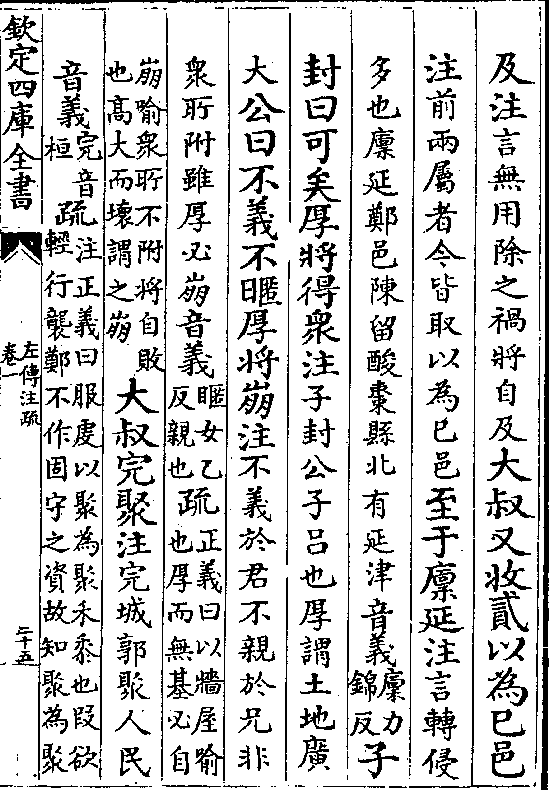 及注言無用除之禍將自及大叔又收貳以為已邑
注前兩屬者今皆取以為已邑至于廩延注言轉侵
多也廩延鄭邑陳留酸棗縣北有延津音義廩力錦反子
封曰可矣厚將得衆注子封公子吕也厚謂土地廣
大公曰不義不暱厚將崩注不義於君不親於兄非
衆所附雖厚必崩音義暱女乙反親也疏正義曰以牆屋喻也厚而無基必自
崩喻衆所不附將自敗也高大而壞謂之崩大叔完聚注完城郭聚人民
音義完音桓疏注正義曰服虔以聚為聚禾黍也叚欲輕行襲鄭不作固守之資故知聚為聚
欽定四庫全書
左傳注疏
卷一
二十五